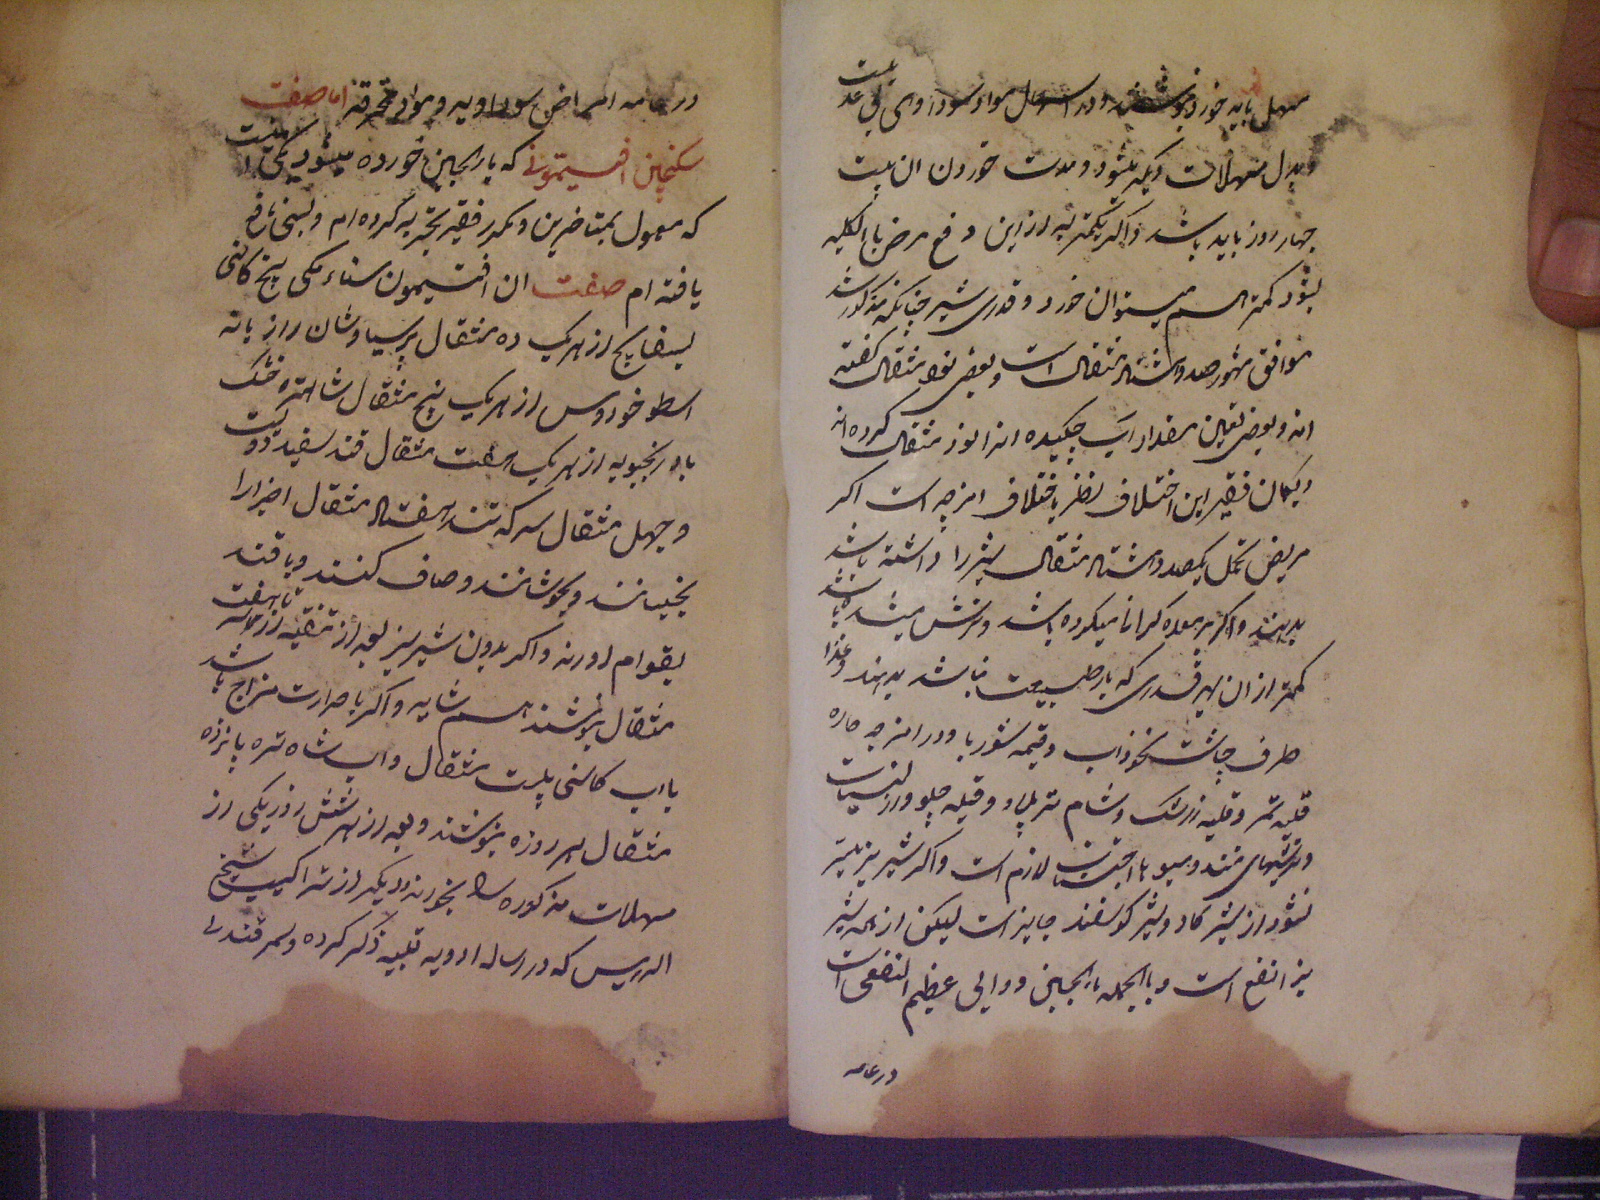 مسهل باید خورد بنوشند و در اسهال مواد سوداوی بی عدیلست
و بدل مسهلات دیکر میشود و مدت خوردن ان بیست
چهار روز باید باشد و اکر کمتر از این دفع مرض باالکلیه
بشود کمتر هم میتوان خورد و قدری شیر چنانکه مذکور شد
موافق مشهور صد و هشتاد مثقال است و بعضی نود مثقال کفته
اند و بعضی تعین مقدار آب چکیده انرا نود مثقال کرده اند
و بکمان فقیر این اختلاف نظر باختلاف امزجه است اکر
مریض تحمل یکصد و هشتاد مثقال شیر را داشته باشد
بدهند و اکر بر معده کرانی میکرده باشد و ترش میشده باشد
کمتر از ان بهر قدری که بار طبیعت نباشد بدهند و غذا
طرف چاشت نخوداب و قیمه شوربا و در امزجه حاره
قلیه تمر و قلیه زرشک و شام تر پلاو و قیله چلو و از لبنیات
و ترشیهای تند و میوها اجتناب لازم است و اکر شیر بز میسر
نشود از شیر کاو و شیر کوسفند جایز است لیکن از همه شیر
بز انفع است و باالجمله ماءالجبن دوایی عظیم النفعی است
در عامه
در عامه امراض سوداویه و مواد محترقه اما صفت
سکنجبین افتیمونی که با ماءالجبن خورده میشود یکی اینست
که معمول متاخرین و مکرر فقیر تجربه کرده ام و بسی نافع
یافته ام صفت ان افتیمون سناء مکی بیخ کاسنی
بسفایج از هر یک ده مثقال پرسیاوشان رازیانه
اسطوخودوس از هر یک پنج مثقال شاهتره خشک
بادرنجبویه از هر یک هفت مثقال قند سفید دویست
و چهل مثقال سرکه تند هفتاد مثقال اجزا را
بخیسانند و بجوشانند و صاف کنند و با قند
بقوام اورند و اکر بدون شیر بز بعد از تنقیه از ده تا هفت
مثقال بنوشند هم شاید و اکر با حرارت مزاج باشد
با اب کاسنی بیست مثقال و اب شاه تره پانزده
مثقال هر روزه بنوشند و بعد از هر شش روز یکی از
مسهلات مذکوره را بخورند و دیکر از تراکیب شیخ
الرییس که در رساله ادویه قلبیه ذکر کرده و سمرقندی